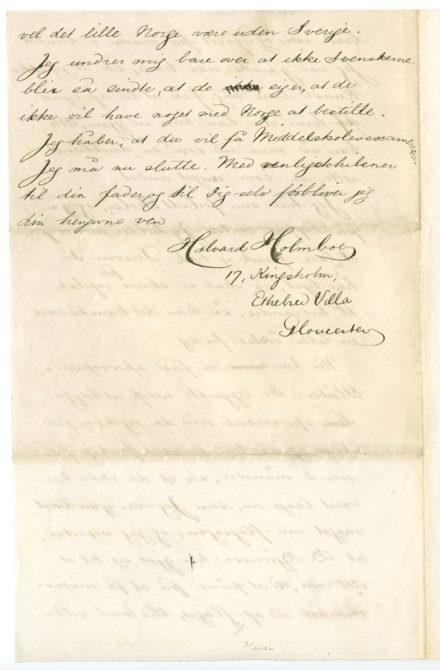 vel det lille Norge være uden Sverige.
Jeg undrer mig bare over at ikke Svenskerne
blir så sindte, at de siger, at de
ikke vil have noget med Norge at bestille.
Jeg håber, at du vil få Middelskoleexamen.
Jeg må nu slutte. Med venligste hilsner
til din fader og til dig selv forbliver jeg
din hengivne ven
Halvard Holmboe
17, Kingsholm,
Ethelred Villa
Gloucester